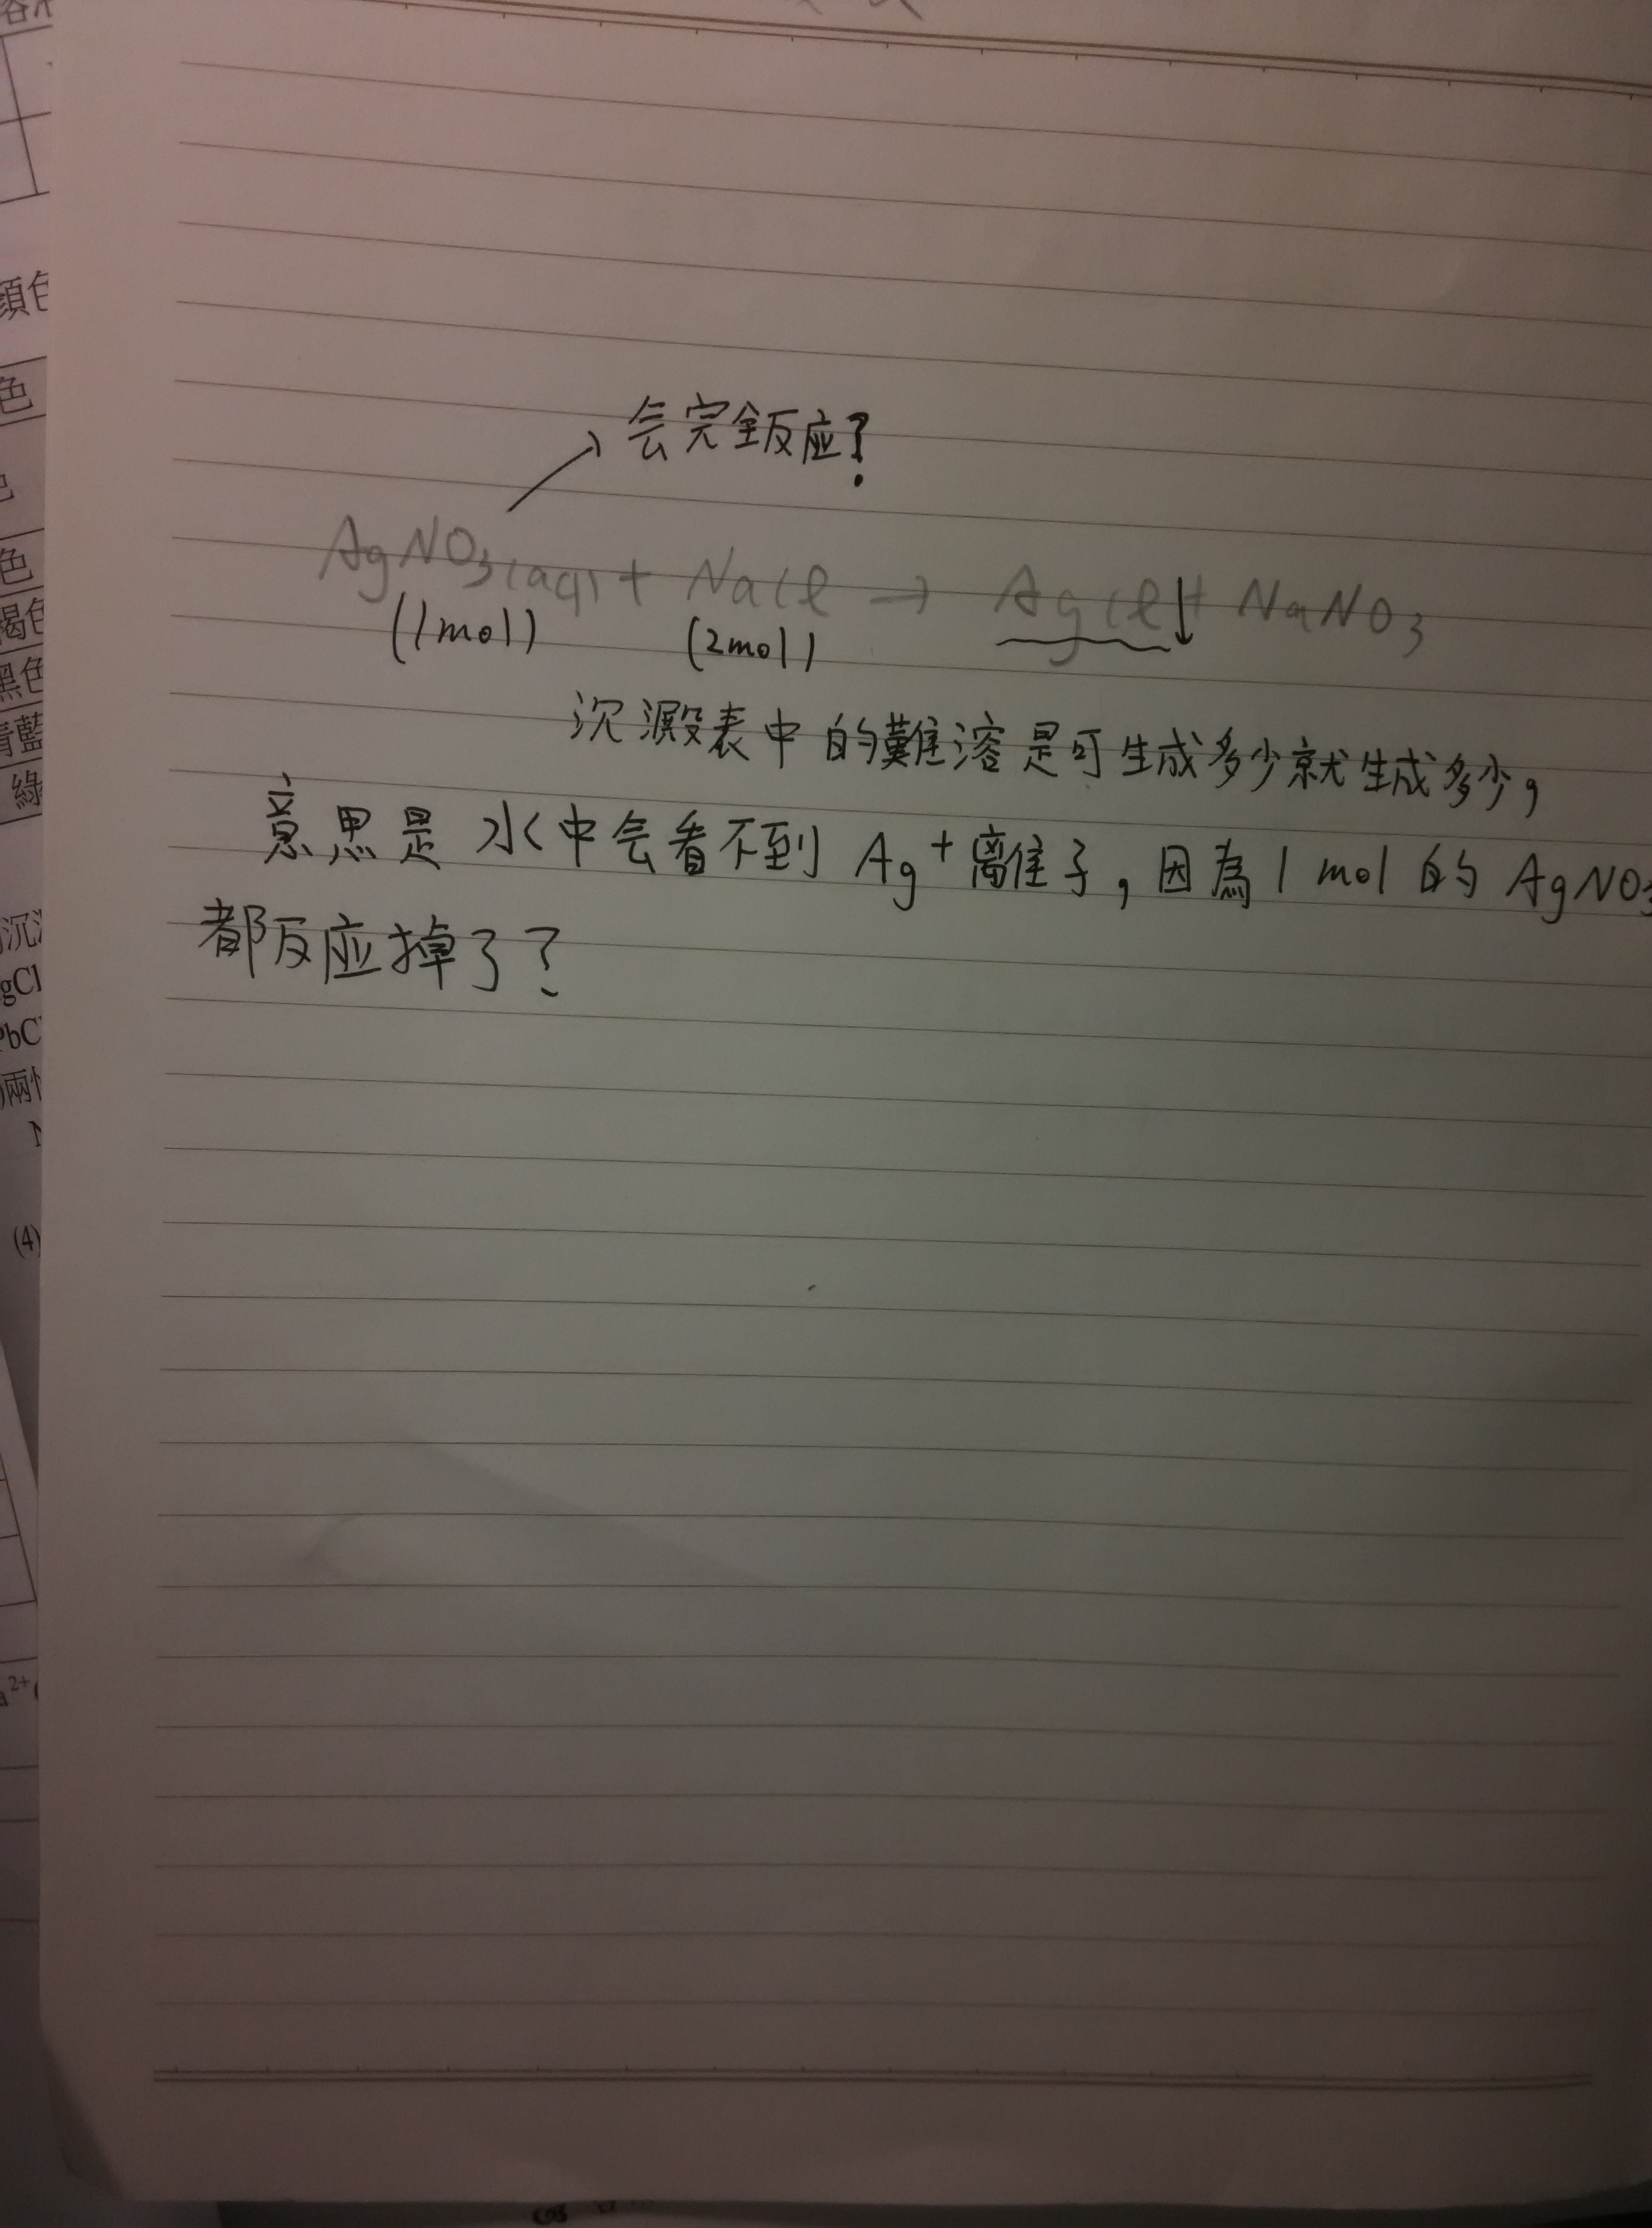 会完全反应?
AgNO₃(aq) + NaCl → AgCl↓ + NaNO₃
(1mol) (2mol)
沉澱表中的難溶是可生成多少就生成多少,
意思是水中会看不到 Ag⁺離子,因為1 mol的 AgNO₃
都反应掉了?
顏色
色
色
褐色
黑色
青藍
綠
gCl
PbC
(4)